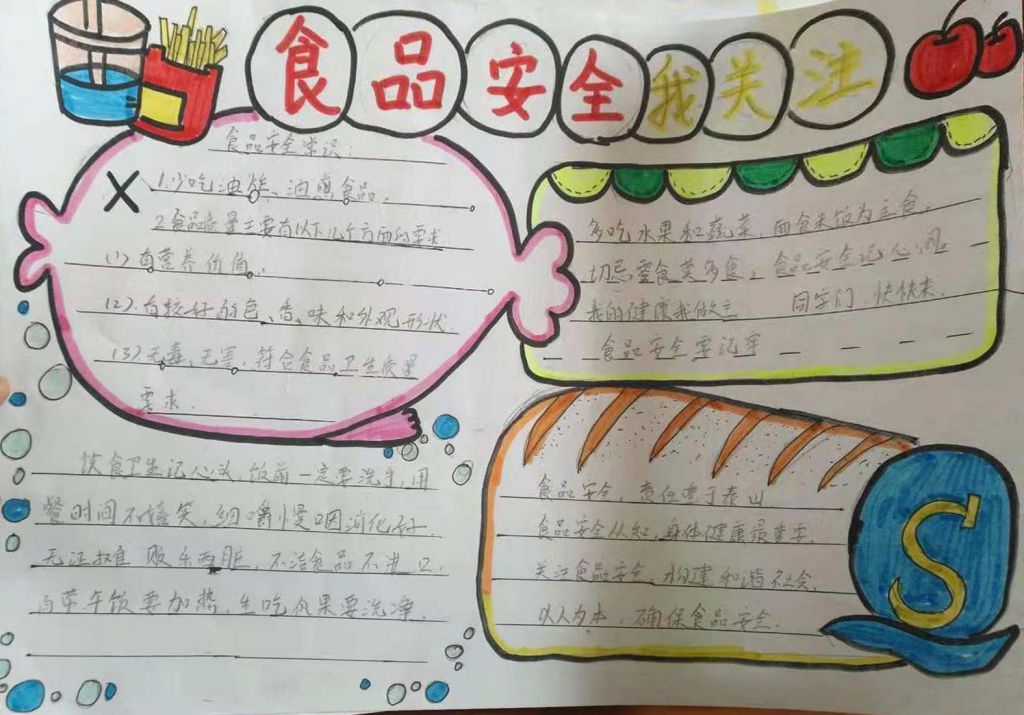 食品安全我关注
食品安全常识:
1.少吃油炸、油煎食品.
2.食品质量主要有以下几个方面的要求:
(1)有营养价值.
(2).有较好的色、香、味和外观形状
(3)无毒、无害,符合食品卫生质量
要求.
多吃水果和蔬菜,面食米饭为主食.
切忌零食莫多食,食品安全记心间
我的健康我做主 同学们 快快来.
食品安全要记牢
饮食卫生记心头,饭前一定要洗手,用
餐时间不嬉笑,细嚼慢咽消化好.
无证摊贩东西脏,不洁食品不进口,
自带午饭要加热,生吃瓜果要洗净.
食品安全,责任重于泰山
食品安全从知,身体健康最重要.
关注食品安全,构建和谐社会.
以人为本,确保食品安全.
S